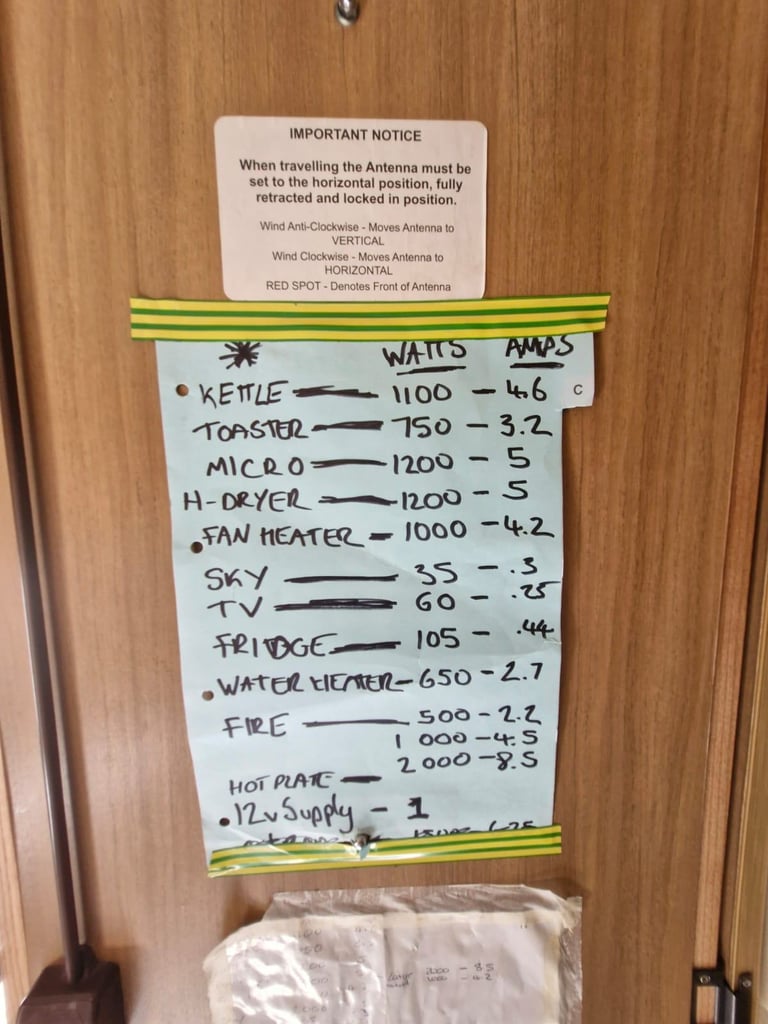 IMPORTANT NOTICE
When travelling the Antenna must be
set to the horizontal position, fully
retracted and locked in position.
Wind Anti-Clockwise - Moves Antenna to
VERTICAL
Wind Clockwise - Moves Antenna to
HORIZONTAL
RED SPOT - Denotes Front of Antenna
WATTS AMPS
C
KETTLE — 1100 - 4.6
TOASTER — 750 - 3.2
MICRO — 1200 - 5
H-DRYER — 1200 - 5
FAN HEATER - 1000 - 4.2
SKY — 35 - .3
TV — 60 - .25
FRIDGE — 105 - .44
WATER HEATER - 650 - 2.7
FIRE — 500 - 2.2
1 000 - 4.5
2 000 - 8.5
HOT PLATE -
12v Supply - 1
- 8.5
- 4.2